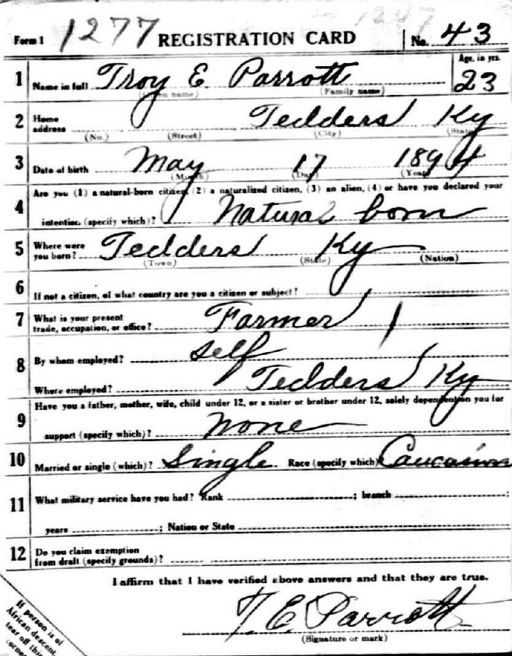 Form 1 1277 REGISTRATION CARD No. 43
1 Name in full Troy E Parrott Age, in yrs. 23
(Given name) (Family name)
2 Home address Tedders Ky
(No.) (Street) (City) (State)
3 Date of birth May 17 1894
(Month) (Day) (Year)
4 Are you (1) a natural-born citizen, (2) a naturalized citizen, (3) an alien, (4) or have you declared your
intention (specify which)? Natural born
5 Where were you born? Tedders Ky
(Town) (State) (Nation)
6 If not a citizen, of what country are you a citizen or subject?
7 What is your present trade, occupation, or office? Farmer 1
8 By whom employed? self
Where employed? Tedders Ky
9 Have you a father, mother, wife, child under 12, or a sister or brother under 12, solely dependent on you for
support (specify which)? none
10 Married or single (which)? Single Race (specify which)? Caucasian
11 What military service have you had? Rank ; branch
years ; Nation or State
12 Do you claim exemption from draft (specify grounds)?
I affirm that I have verified above answers and that they are true.
T. E. Parrott
(Signature or mark)
If person is of
African descent,
tear off this
corner